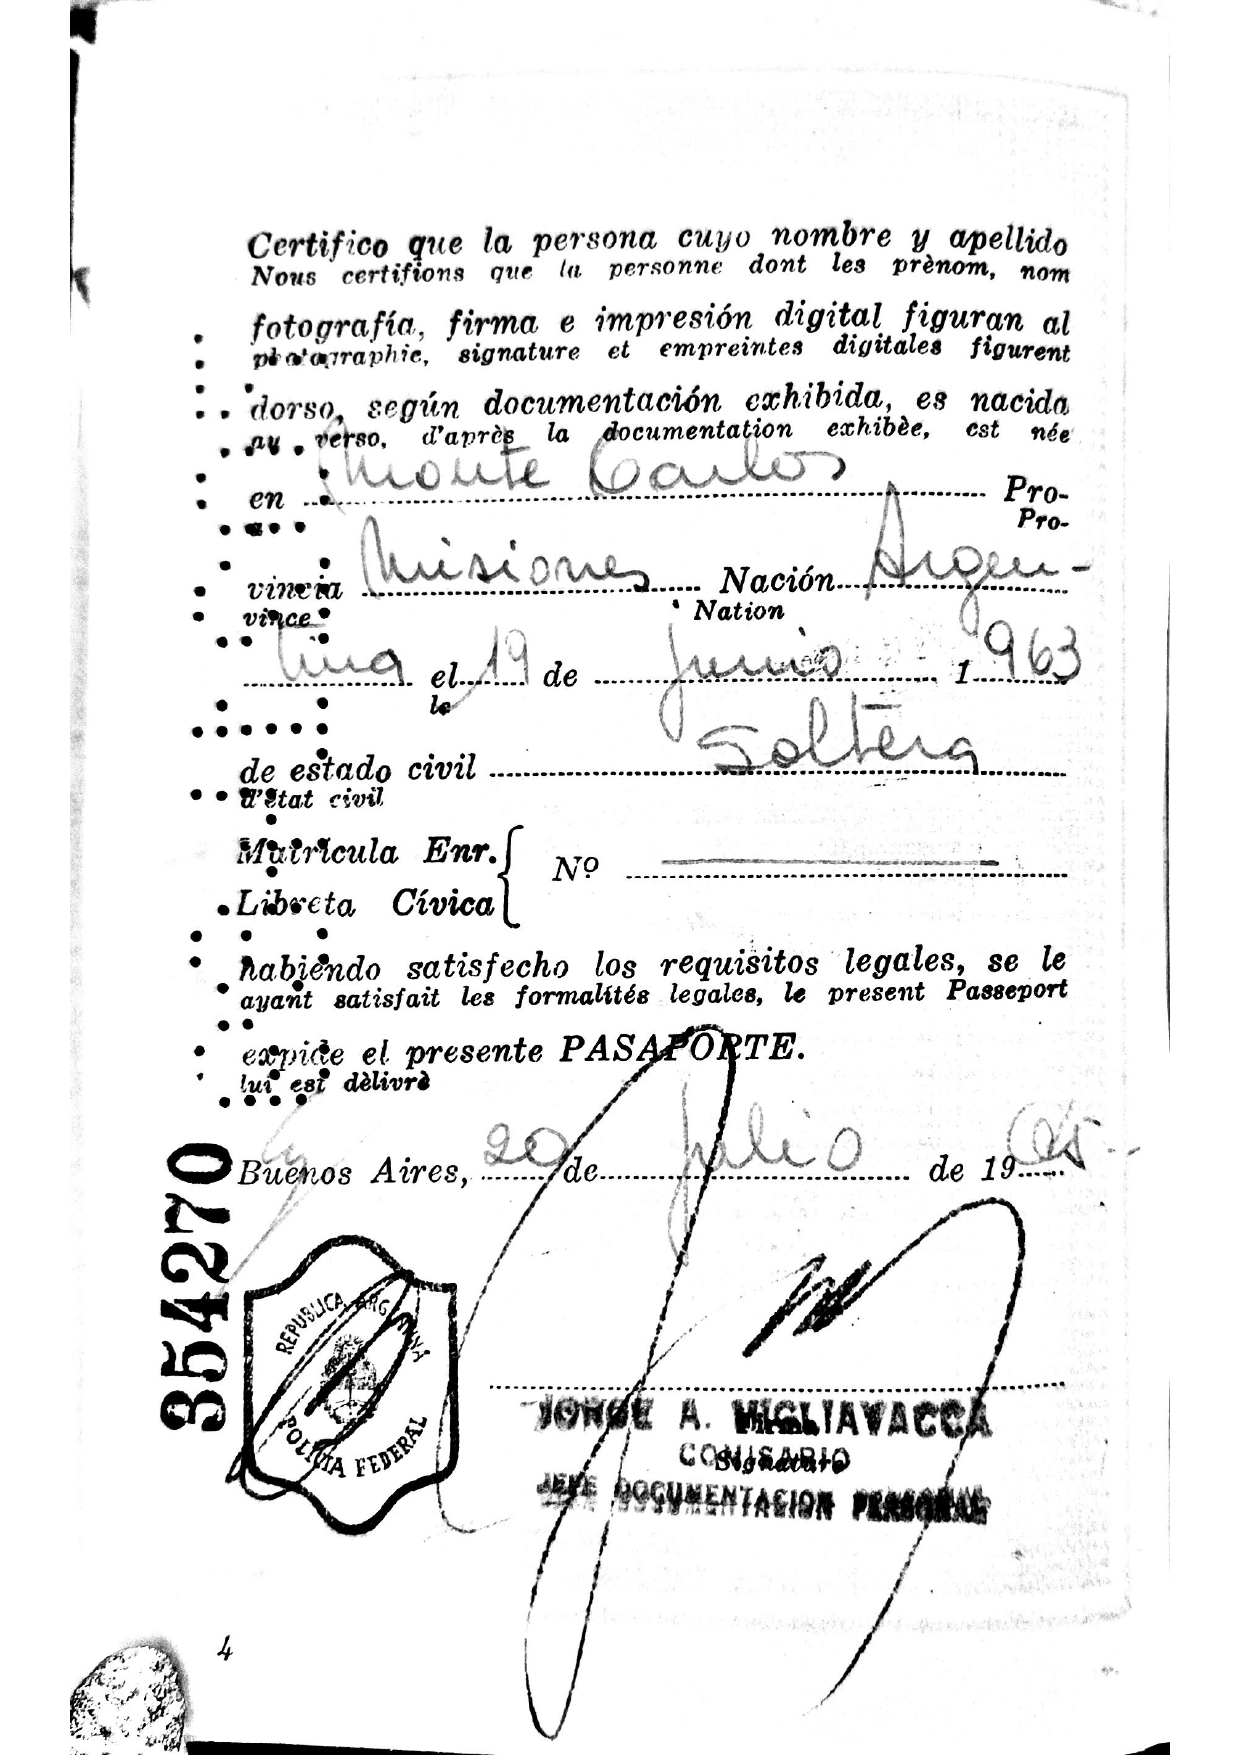 Certifico que la persona cuyo nombre y apellido
Nous certifions que la personne dont les prènom, nom
fotografía, firma e impresión digital figuran al
photographie, signature et empreintes digitales figurent
dorso, según documentación exhibida, es nacida
au verso, d'après la documentation exhibèe, est née
en Monte Carlos Pro-
Pro-
vincia Misiones Nación Argen-
vince Nation
tina el 19 de junio 1963
le
de estado civil Soltera
d'ètat civil
Matrícula Enr.
Nº
Libreta Cívica
habiendo satisfecho los requisitos legales, se le
ayant satisfait les formalités legales, le present Passeport
expide el presente PASAPORTE.
lui est dèlivrè
Buenos Aires, 20 de julio de 1965
354270
REPUBLICA ARGENTINA
POLICIA FEDERAL
JORGE A. MIGLIAVACCA
Firma
COMISARIO
Signature
JEFE DOCUMENTACION PERSONAL
4